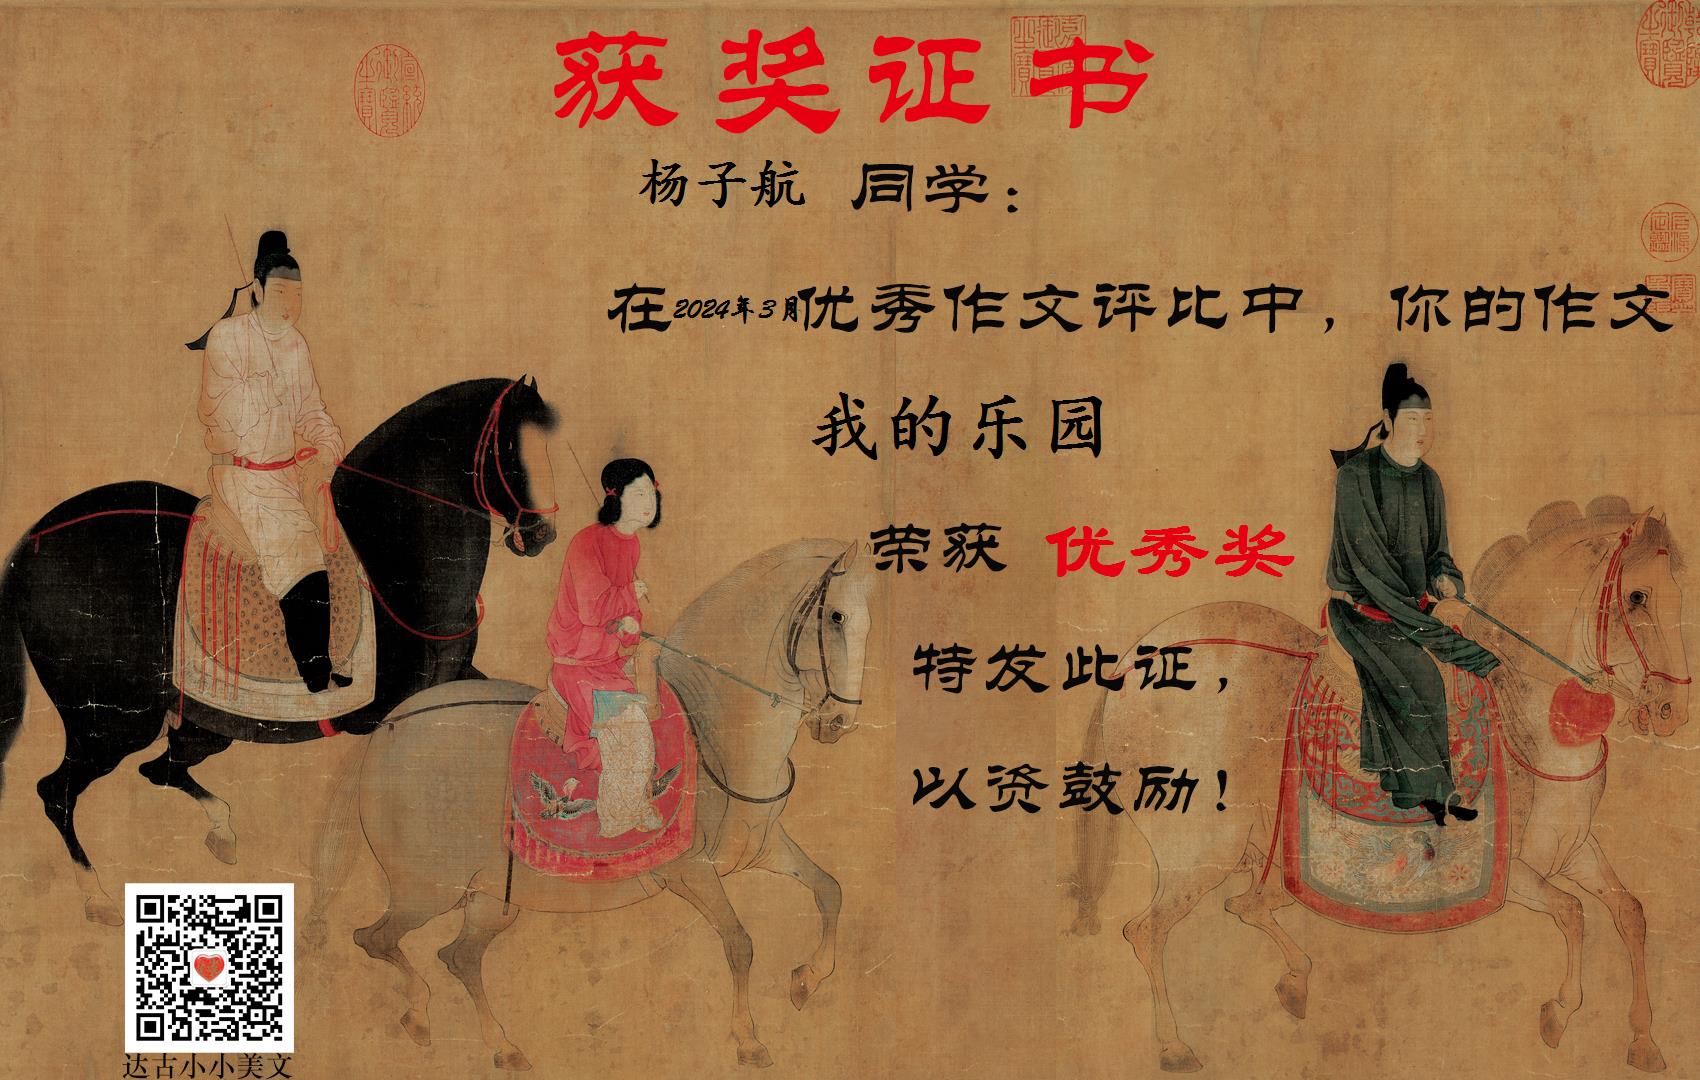 获奖证书
杨子航 同学：
在2024年3月优秀作文评比中，你的作文
我的乐园
荣获 优秀奖
特发此证，
以资鼓励！
达古小小美文